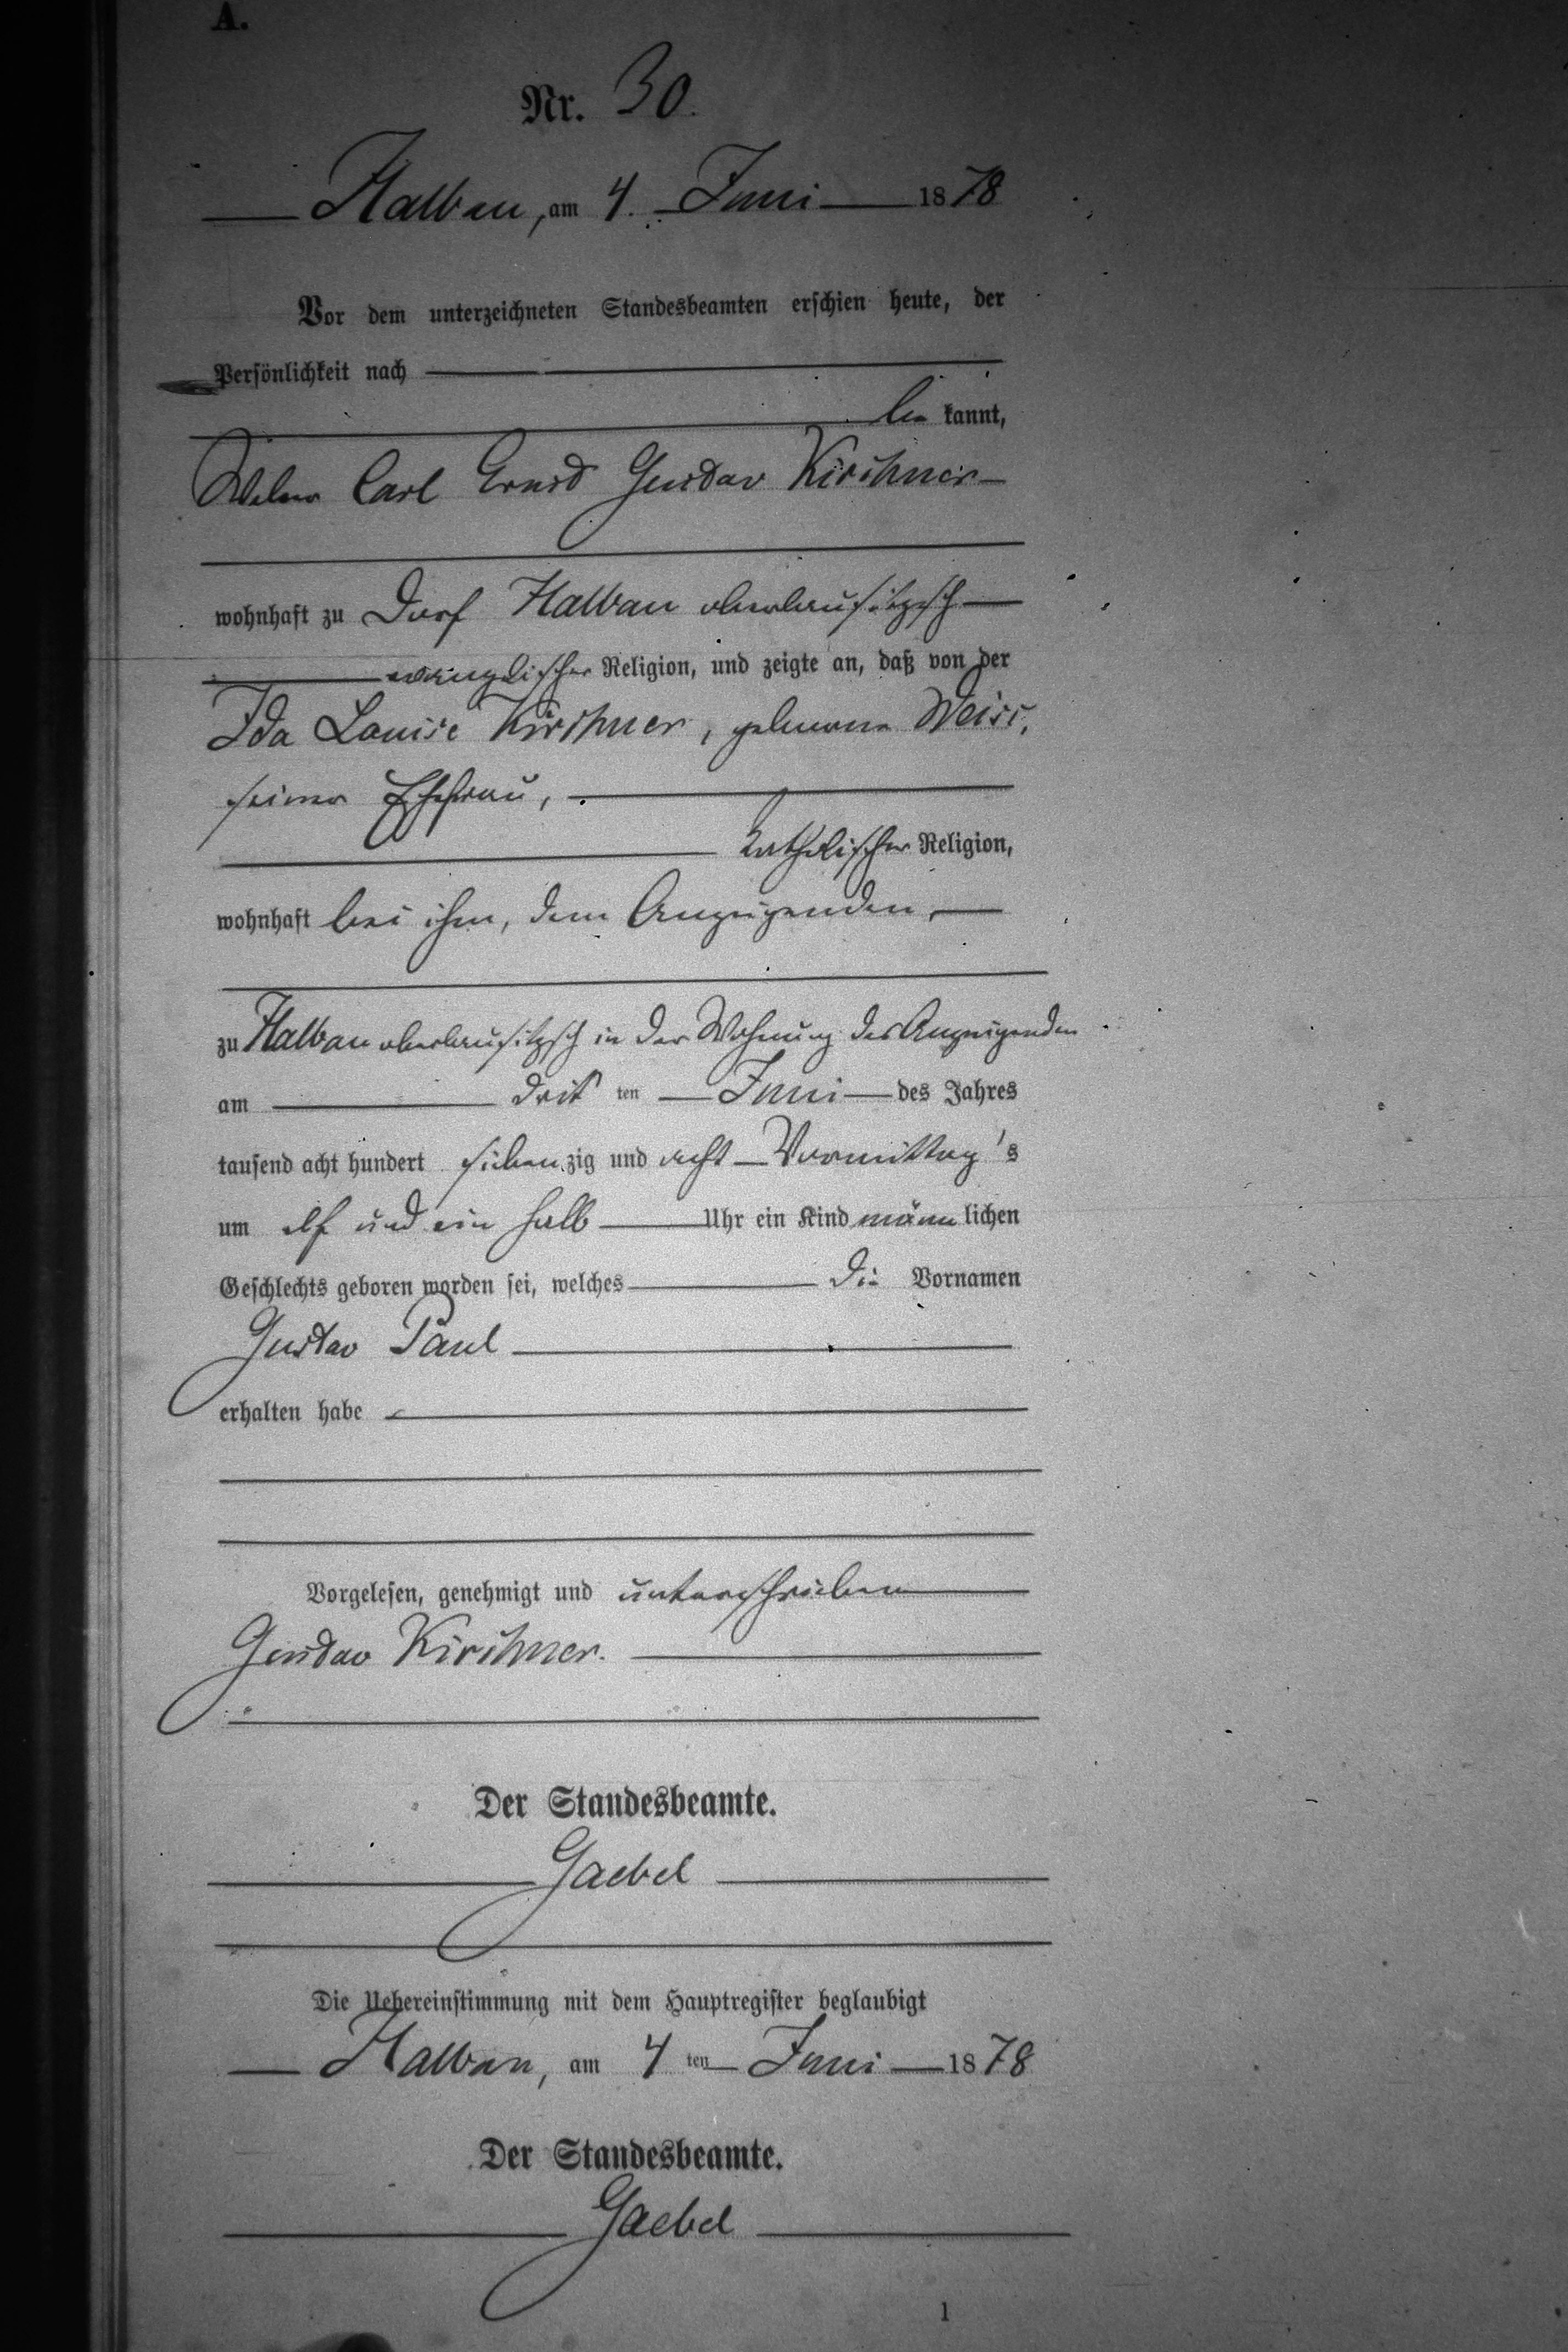 A.
Nr. 30.
Halbau, am 4. Juni 1878
Vor dem unterzeichneten Standesbeamten erschien heute, der
Persönlichkeit nach
bekannt,
Weber Carl Ernst Gustav Kirchner
wohnhaft zu Dorf Halbau oberlausitzisch
evangelischer Religion, und zeigte an, daß von der
Ida Louise Kirchner, geborene Weiss,
seiner Ehefrau,
katholischer Religion,
wohnhaft bei ihm, dem Anzeigenden,
zu Halbau oberlausitzsch in der Wohnung des Anzeigenden
am dritten Juni des Jahres
tausend acht hundert siebenzig und acht Vormittag's
um elf und ein halb Uhr ein Kind männlichen
Geschlechts geboren worden sei, welches die Vornamen
Gustav Paul
erhalten habe
Vorgelesen, genehmigt und unterschrieben
Gustav Kirchner.
Der Standesbeamte.
Gaebel
Die Uebereinstimmung mit dem Hauptregister beglaubigt
Halbau, am 4ten Juni 1878
Der Standesbeamte.
Gaebel
1